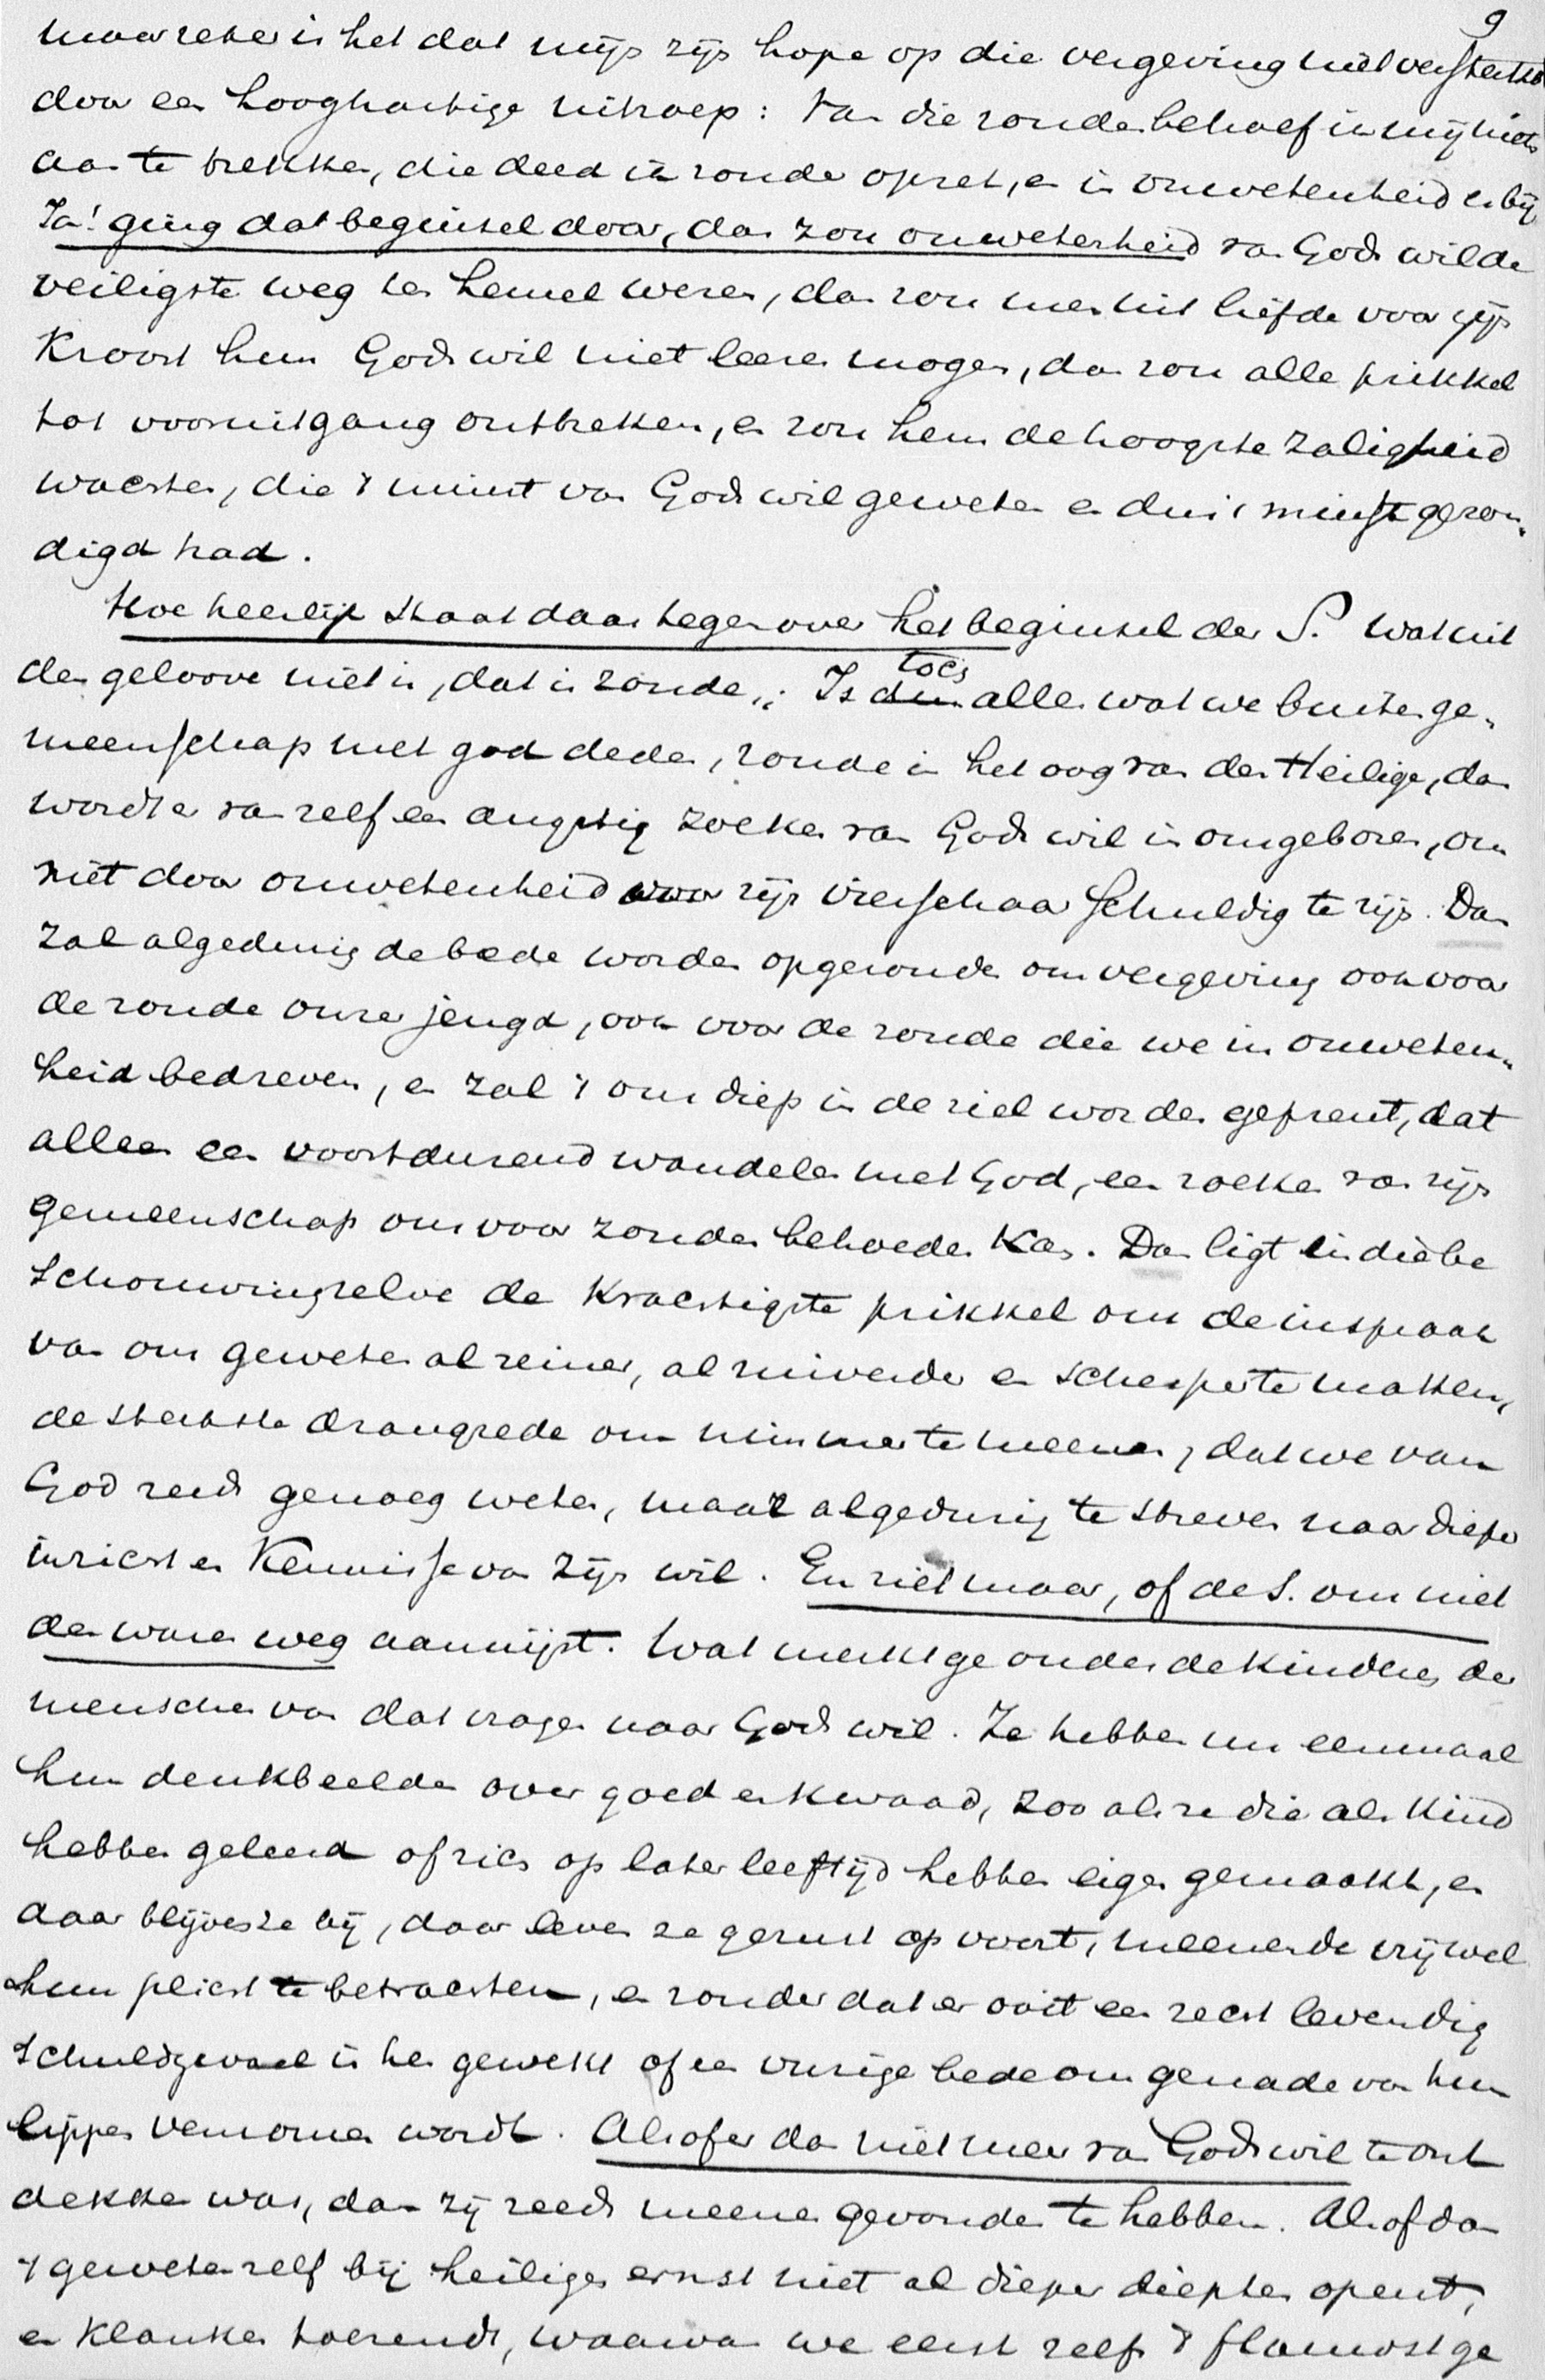 9
maar zeker is het dat mijn zijn hope op die vergeving niet versterkt
door een hooghartige uitroep: Van die zonde behoef ik mij niets
aan te trekken, die deed ik zonder opzet, en in onwetenheid er bij
Ja! ging dat beginsel door, dan zou onwetenheid van Gods wil de
veiligste weg ten hemel wezen, dan zou men uit liefde voor zijn
Kroost hun Gods wil niet leeren mogen, dan zou alle prikkel
tot vooruitgang ontbreken, en zou hem de hoogste zaligheid
wachten, die 't minst van Gods wil geweten en dus 't minst gezon„
digd had.
Hoe heerlijk staat daar tegenover het beginsel der S. Wat uit
den geloove niet is, dat is zonde„: Is toch alles wat we buiten ge„
meenschap met god deden, zonde in het oog van den Heilige, dan
wordt er van zelf een angstig zoeken van Gods wil in ons geboren, om
niet door onwetenheid voor zijn vierschaar schuldig te zijn. Dan
zal algedurig de bede worden opgezonden om vergeving ook voor
de zonde onzer jeugd, ook voor de zonde die we in onweten„
heid bedreven, en zal 't ons diep in de ziel worden geprent, dat
alleen een voortdurend wandelen met God, een zoeken van zijn
gemeenschap ons voor zonden behoeden kan. Dan ligt in die be
schouwing zelve de krachtigste prikkel om de inspraak
van ons geweten al reiner, al zuiverder en scherper te maken,
de sterkste drangrede om nimmer te meenen, dat we van
God reeds genoeg weten, maar algedurig te streven naar dieper
inzicht en Kennisse van Zijn wil. En ziet maar, of de S. ons niet
den waren weg aanwijst. Wat merkt ge onder de kinderen der
menschen van dat vragen naar Gods wil. Ze hebben nu eenmaal
hun denkbeelden over goed en kwaad, zoo als ze die als kind
hebben geleerd of zich op later leeftijd hebben eigen gemaakt, en
daar blijven ze bij, daar leven ze gerust op voort, meenende vrij wel
hun plicht te betrachten, en zonder dat er ooit een recht levendig
schuldgevoel in hen gewekt of een vurige bede om genade van hun
lippen vernomen wordt. Alsof er dan niet meer van Gods wil te ont
dekken was, dan zij reeds meenen gevonden te hebben. Alsof dan
't geweten zelf bij heiligen ernst niet al dieper diepten opent,
en klanken toezendt, waarvan we eerst zelfs 't flauwst ge